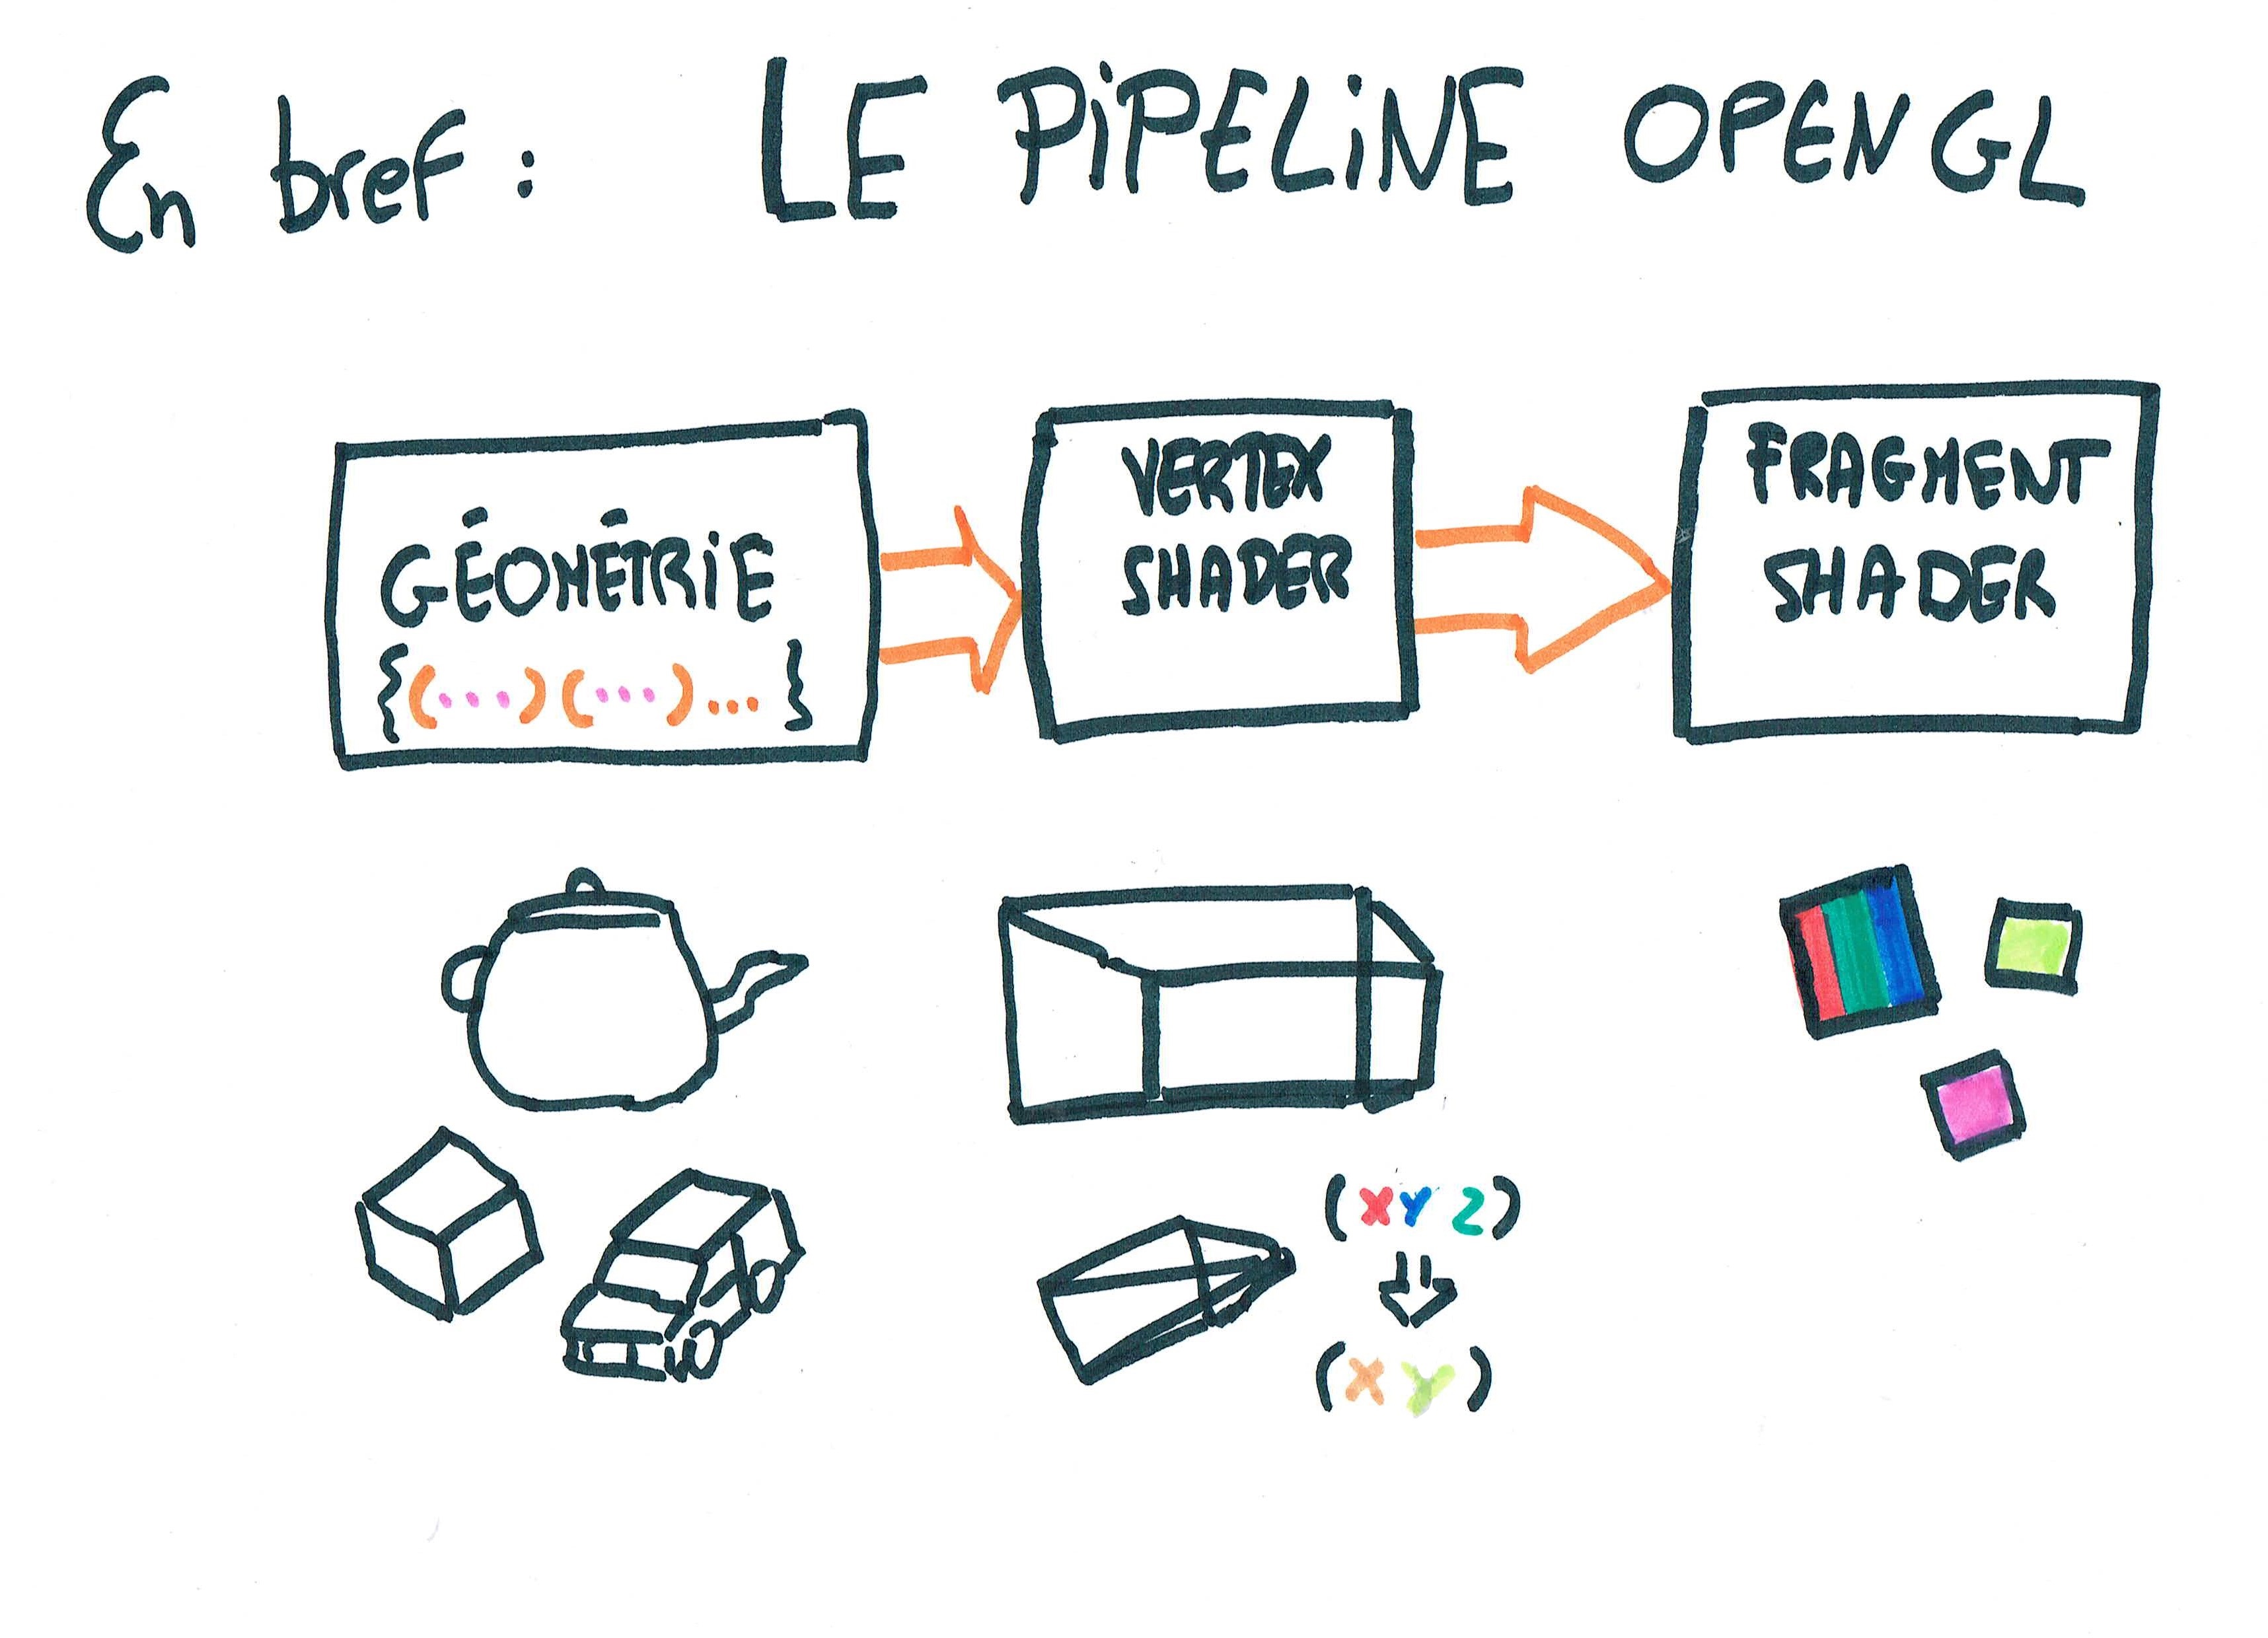 En bref : LE PiPELiNE OPEN GL
GÉOMÉTRiE
{(...)(...)...}
VERTEX
SHADER
FRAGMENT
SHADER
(X Y Z)
(X Y)